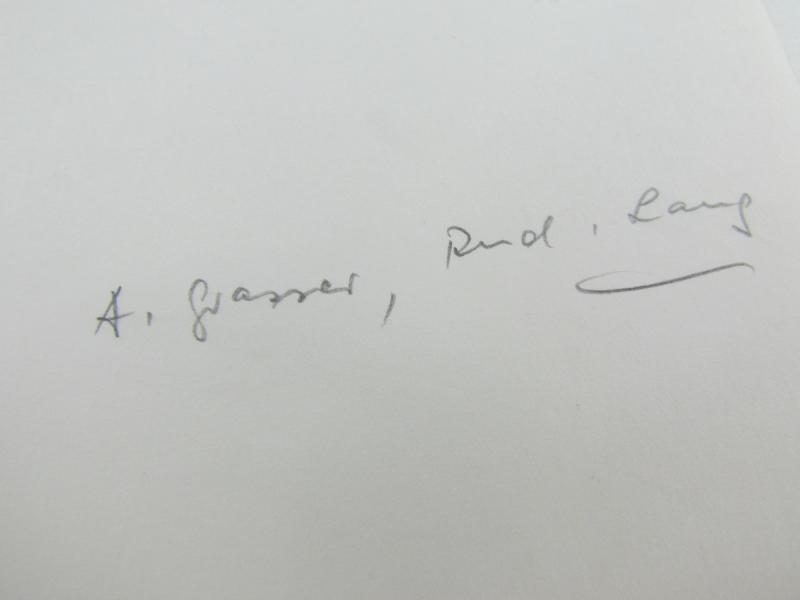 A. Grasser, Rud. Lang